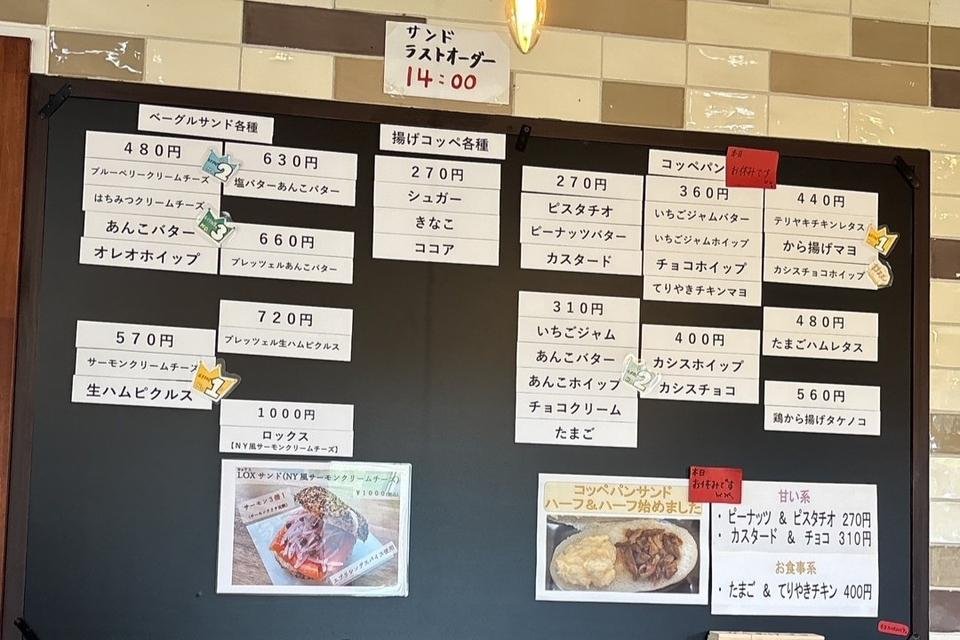 サンド
ラストオーダー
14:00
ベーグルサンド各種
480円
ブルーベリークリームチーズ
はちみつクリームチーズ
あんこバター
オレオホイップ
570円
サーモンクリームチーズ
生ハムピクルス
630円
塩バターあんこバター
660円
プレッツェルあんこバター
720円
プレッツェル生ハムピクルス
1000円
ロックス
【NY風サーモンクリームチーズ】
2
3
1
揚げコッペ各種
270円
シュガー
きなこ
ココア
コッペパン
本日
お休みです
270円
ピスタチオ
ピーナッツバター
カスタード
310円
いちごジャム
あんこバター
あんこホイップ
チョコクリーム
たまご
2
360円
いちごジャムバター
いちごジャムホイップ
チョコホイップ
てりやきチキンマヨ
400円
カシスホイップ
カシスチョコ
440円
テリヤキチキンレタス
から揚げマヨ
カシスチョコホイップ
1
480円
たまごハムレタス
560円
鶏から揚げタケノコ
LOXサンド(NY風サーモンクリームチーズ)
¥1000
サーモン3倍!
エブリシングスパイス使用
コッペパンサンド
ハーフ&ハーフ始めました
本日
お休みです
甘い系
・ピーナッツ & ピスタチオ 270円
・カスタード & チョコ 310円
お食事系
・たまご & てりやきチキン 400円